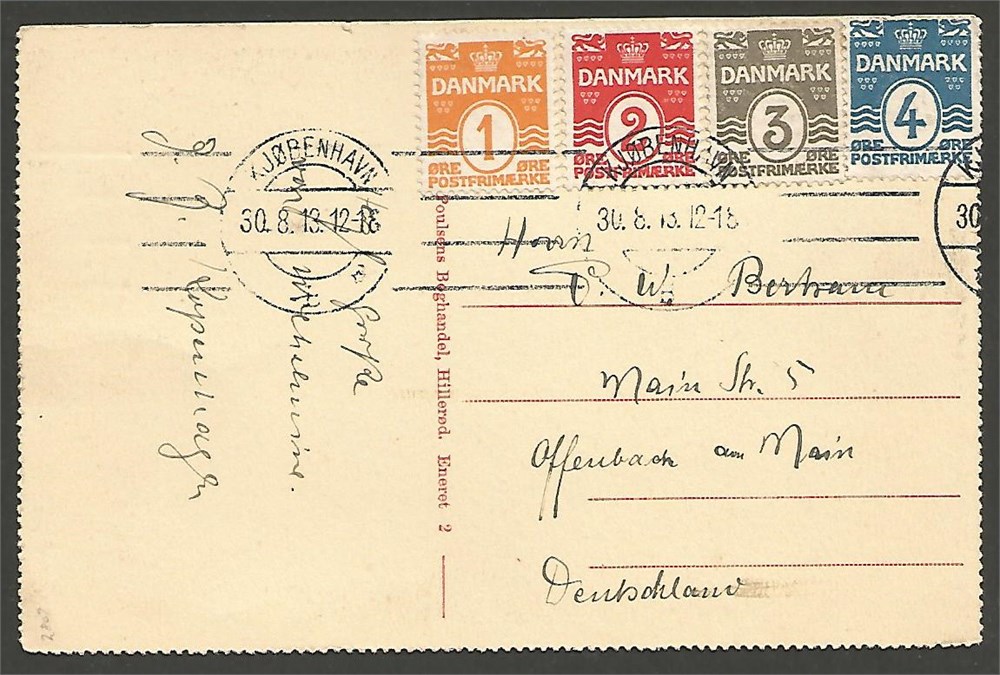 DANMARK
1
ØRE ØRE
POSTFRIMÆRKE
DANMARK
2
ØRE ØRE
POSTFRIMÆRKE
DANMARK
3
ØRE ØRE
POSTFRIMÆRKE
DANMARK
4
ØRE ØRE
POSTFRIMÆRKE
KJØBENHAVN
30. 8. 13. 12-18
KJØBENHAVN
30. 8. 13. 12-18
K
30
Herrn
Bertram
Main Str. 5
Offenbach am Main
Deutschland
Poulsens Boghandel, Hillerød. Eneret 2
Grüße
von
Wilhelmine.
Kopenhagen